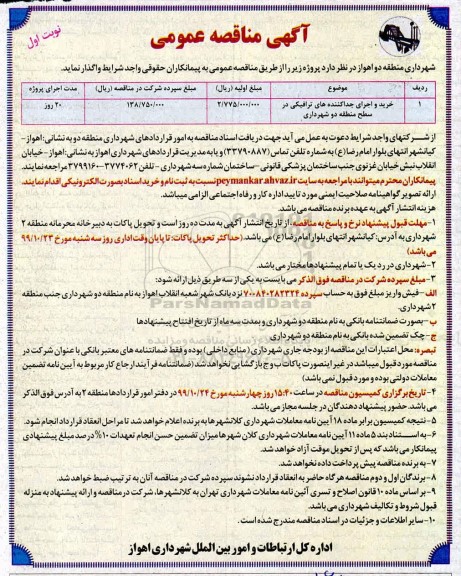 نوبت اول
آگهی مناقصه عمومی
شهرداری منطقه دو اهواز در نظر دارد پروژه زیر را از طریق مناقصه عمومی به پیمانکاران حقوقی واجد شرایط واگذار نماید.
ردیف موضوع مبلغ اولیه (ریال) مبلغ سپرده شرکت در مناقصه (ریال) مدت اجرای پروژه
۱ خرید و اجرای جداکننده های ترافیکی در سطح منطقه دو شهرداری ۲/۷۷۵/۰۰۰/۰۰۰ ۱۳۸/۷۵۰/۰۰۰ ۲۰ روز
از شرکتهای واجد شرایط دعوت به عمل می آید جهت دریافت اسناد مناقصه به امور قراردادهای شهرداری منطقه دو به نشانی: اهواز -
کیانشهر انتهای بلوار امام رضا (ع) به شماره تلفن تماس (۳۳۷۹۰۸۸۷) و یا به مدیریت قراردادهای شهرداری اهواز به نشانی: اهواز - خیابان
انقلاب نبش خیابان غزنوی جنب ساختمان پزشکی قانونی - ساختمان شماره سه شهرداری - تلفن ۳۷۷۴۰۶۲-۳۷۹۹۱۶۰ مراجعه نمایند.
پیمانکاران محترم میتوانند با مراجعه به سایت peymankar.ahvaz.ir نسبت به ثبت نام و خرید اسناد بصورت الکترونیکی اقدام نمایند.
ارائه تصویر گواهینامه صلاحیت ایمنی مورد تایید اداره کار و رفاه اجتماعی الزامی میباشد.
هزینه انتشار آگهی به عهده برنده مناقصه می باشد.
۱- مهلت قبول پیشنهاد نرخ و پاسخ به مناقصه، از تاریخ انتشار آگهی به مدت ده روز است و تحویل پاکات به دبیرخانه محرمانه منطقه ۲
شهرداری به آدرس: کیانشهر انتهای بلوار امام رضا (ع) می باشد. (حداکثر تحویل پاکات: تا پایان وقت اداری روز سه شنبه مورخ ۹۹/۱۰/۲۳
می باشد)
۲- شهرداری در رد یک یا تمام پیشنهادها مختار می باشد.
۳- مبلغ سپرده شرکت در مناقصه فوق الذکر می بایست به یکی از سه طریق ذیل ارائه شود:
الف - فیش واریز مبلغ فوق به حساب سپرده ۷۰۰۸۴۰۲۸۲۳۲۴ نزد بانک شهر شعبه انقلاب اهواز به نام منطقه دو شهرداری جنب منطقه
۲ شهرداری.
ب- بصورت ضمانتنامه بانکی به نام منطقه دو شهرداری و بمدت سه ماه از تاریخ افتتاح پیشنهادها
ج- چک تضمین شده بانکی به نام منطقه دو شهرداری
تبصره: محل اعتبارات این مناقصه از بودجه جاری شهرداری (منابع داخلی) بوده و فقط ضمانتنامه های معتبر بانکی با عنوان شرکت در
مناقصه مورد قبول میباشد در غیر اینصورت پاکات ب و ج بازگشایی نخواهد شد (ضمانتنامه فرآیند ارجاع کار مربوط به آیین نامه تضمین
معاملات دولتی بوده و مورد قبول نمی باشد)
۴- تاریخ برگزاری کمیسیون مناقصه در ساعت ۱۵:۴۰ روز چهارشنبه مورخ ۹۹/۱۰/۲۴ در دفتر امور قراردادها منطقه ۲ به آدرس فوق الذکر
می باشد. حضور پیشنهاد دهندگان در جلسه مجاز می باشد.
۵- نتیجه کمیسیون برابر ماده ۱۸ آیین نامه معاملات شهرداری کلانشهرها به برنده اعلام خواهد شد تا مراحل انعقاد قرارداد انجام شود.
۶- به استناد بند ۵ ماده ۱۱ آیین نامه معاملات شهرداری کلان شهرها میزان تضمین حسن انجام تعهدات ۱۰% درصد مبلغ پیشنهادی
پیمانکار می باشد که پس از تحویل موقت آزاد خواهد شد.
۷- به برنده مناقصه پیش پرداخت داده نخواهد شد.
۸- برندگان اول و دوم مناقصه هرگاه حاضر به انعقاد قرارداد نشوند سپرده شرکت در مناقصه آنان به ترتیب ضبط خواهد شد.
۹- بر اساس ماده ۱۰ قانون اصلاح و تسری آئین نامه معاملات شهرداری تهران به کلانشهرها، شرکت در مناقصه و ارائه پیشنهاد به منزله
قبول شروط و تکالیف شهرداری می باشد.
۱۰- سایر اطلاعات و جزئیات در اسناد مناقصه مندرج شده است.
اداره کل ارتباطات و امور بین الملل شهرداری اهواز